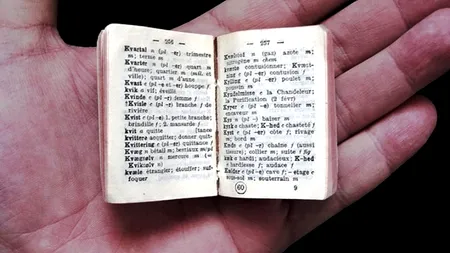 — 256 —
Kvartal n (pl -er) trimestre
m; terme m
Kvarter n (pl -er) quart m
d'heure; quartier m (mil. et
ville); quart m d'aune
Kvast c (pl -e) houppe f
kvik a vif; éveillé
Kvinde c (pl -r) femme f
Kvisle c (pl -r) branche f de
rivière
Kvist c (pl -e) 1. petite branche;
brindille f; 2. mansarde f
kvit a quitte
kvittere acquitter; donner quit-
Kvittering c (pl -er) quittance f
Kvæg n bétail m; bestiaux m/pl
Kvægsølv n mercure m (=
Kviksølv n)
kvæle étrangler; étouffer; suf-
foquer
— 257 —
Kvælstof n (gaz) azote m;
nitrogène m chem
kvæste contusionner; Kvæst-
else c (pl -r) contusion f
Kylling c (pl -er) poulet m;
poussin m
Kyndelmisse c la Chandeleur;
la Purification (2 févr)
Kyper c (pl -e) tonnelier m;
encaveur m
Kys n (pl -) baiser m
kysk a chaste; K-hed c chasteté f
Kyst c (pl -er) côte f; rivage
m; bord m
Kæde c (pl -r) chaîne f (aussi
tissure); collier m; suite f fig
kæk a hardi; audacieux; K-hed
c hardiesse f; audace f
Kælder c (pl -e) cave f; - etage c
sous-sol m; souterrain m
60 9